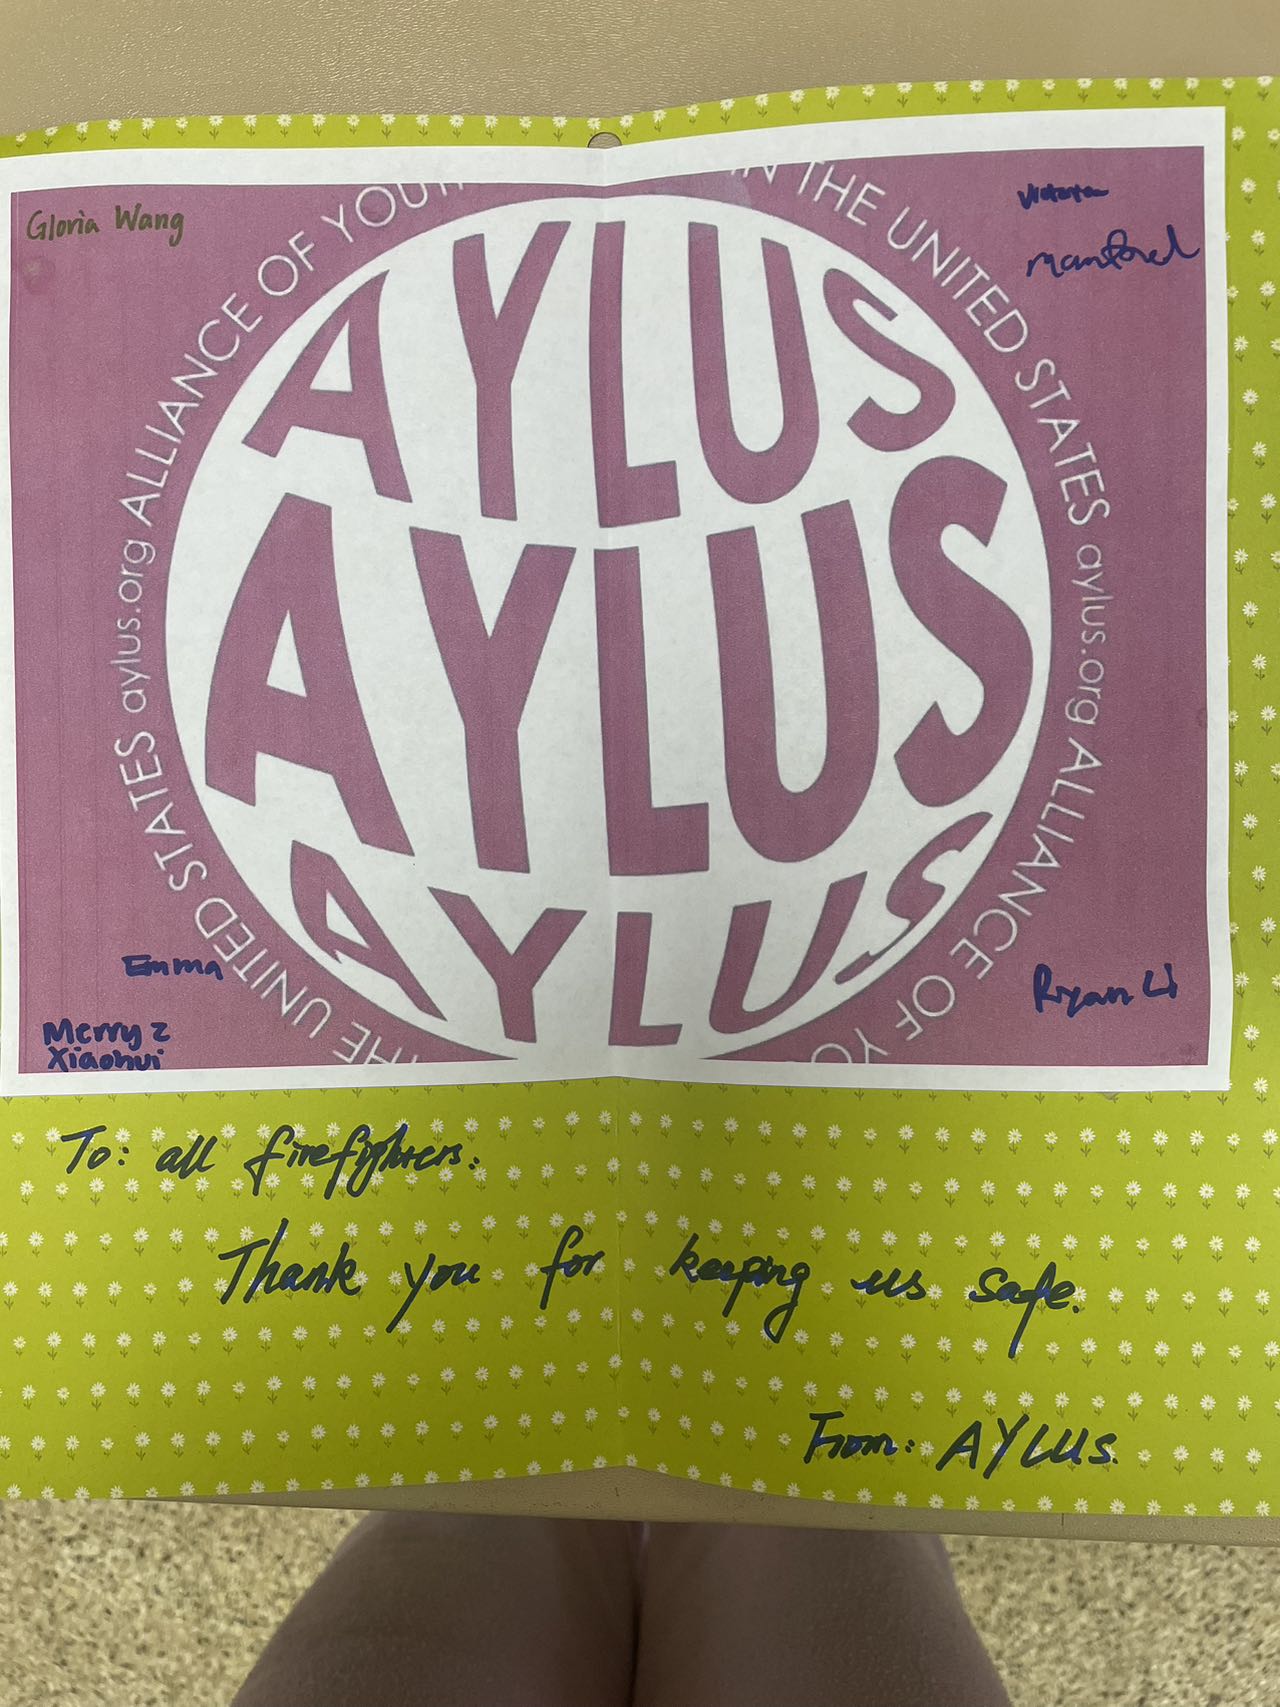 Gloria Wang
Victoria
Manfred
AYLUS
AYLUS
AYLUS
aylus.org ALLIANCE OF YOUTH
IN THE UNITED STATES aylus.org ALLIANCE OF YO
THE UNITED STATES
Emma
Merry Z
Xiaohui
Ryan Li
To: all firefighters:
Thank you for keeping us safe.
From: AYLUS.